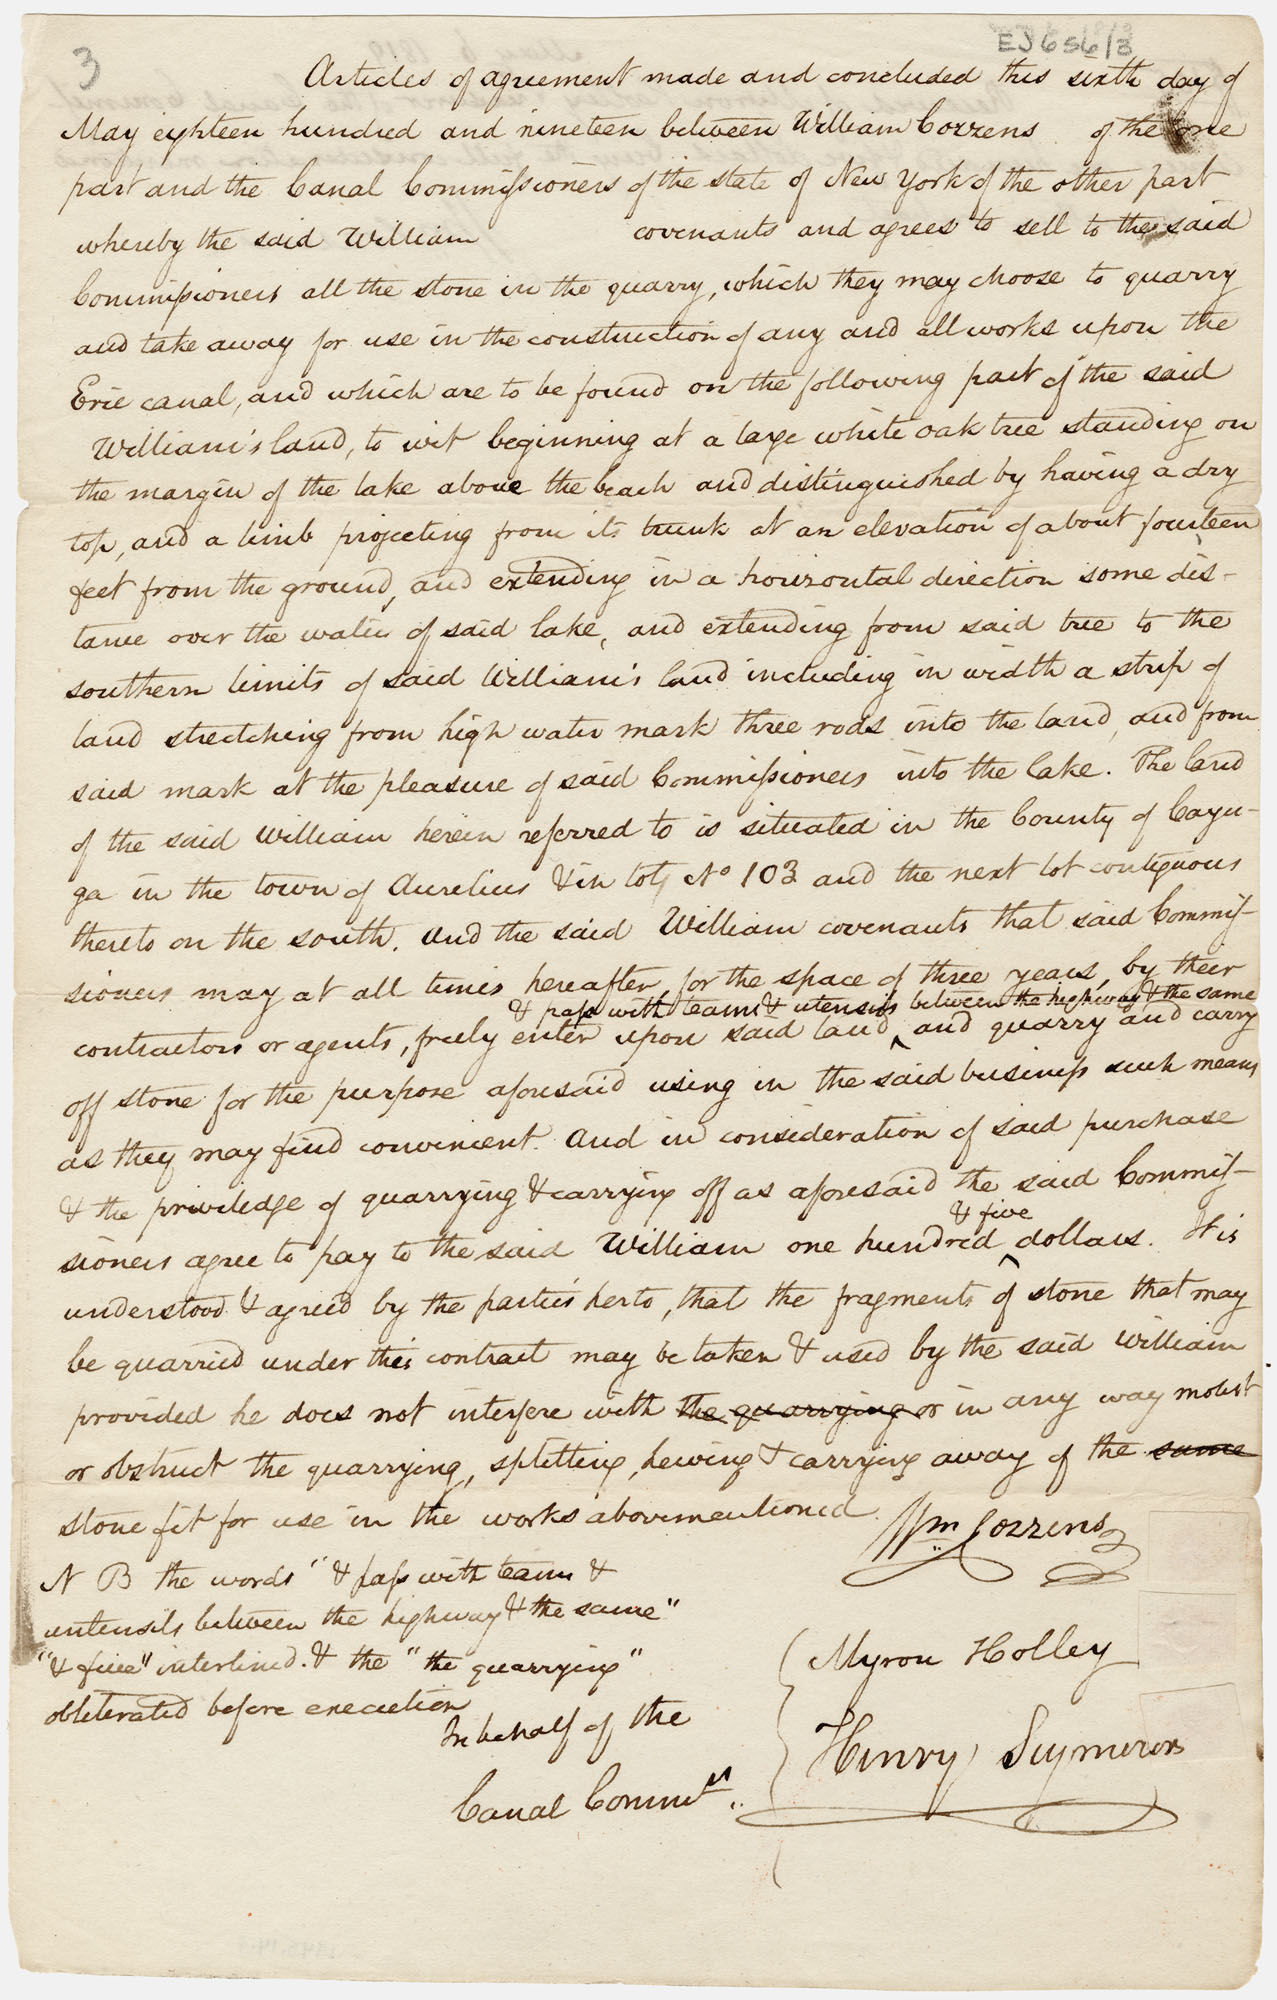 3
EJ 656/3
Articles of agreement made and concluded this sixth day of
May eighteen hundred and nineteen between William Cozzens of the one
part and the Canal Commissioners of the state of New York of the other part
whereby the said William covenants and agrees to sell to the said
Commissioners all the stone in the quarry, which they may choose to quarry
and take away for use in the construction of any and all works upon the
Erie canal, and which are to be found on the following part of the said
William's land, to wit beginning at a large white oak tree standing on
the margin of the lake above the beach and distinguished by having a dry
top, and a limb projecting from its trunk at an elevation of about fourteen
feet from the ground, and extending in a horizontal direction some dis-
tance over the water of said lake, and extending from said tree to the
southern limits of said William's land including in width a strip of
land stretching from high water mark three rods into the land, and from
said mark at the pleasure of said Commissioners into the lake. The land
of the said William herein referred to is situated in the County of Cayu-
ga in the town of Aurelius & in lots No 103 and the next lot contiguous
thereto on the south. And the said William covenants that said Commis-
sioners may at all times hereafter, for the space of three years, by their
& pass with teams & utensils between the highway & the same
contractors or agents, freely enter upon said land ‸ and quarry and carry
off stone for the purpose aforesaid using in the said business such means
as they may find convenient. And in consideration of said purchase
& the priviledge of quarrying & carrying off as aforesaid the said Commis-
& five
sioners agree to pay to the said William one hundred ‸ dollars. It is
understood & agreed by the parties herto, that the fragments of stone that may
be quarried under this contract may be taken & used by the said William
provided he does not interfere with the quarrying or in any way molest
or obstruct the quarrying, splitting, hewing & carrying away of the same
stone fit for use in the works abovementioned.
Wm Cozzens
N B the words "& pass with teams &
untensils between the highway & the same"
"& five" interlined. & the "the quarrying"
obliterated before execution
In behalf of the
Canal Commrs
Myron Holley
Henry Seymour